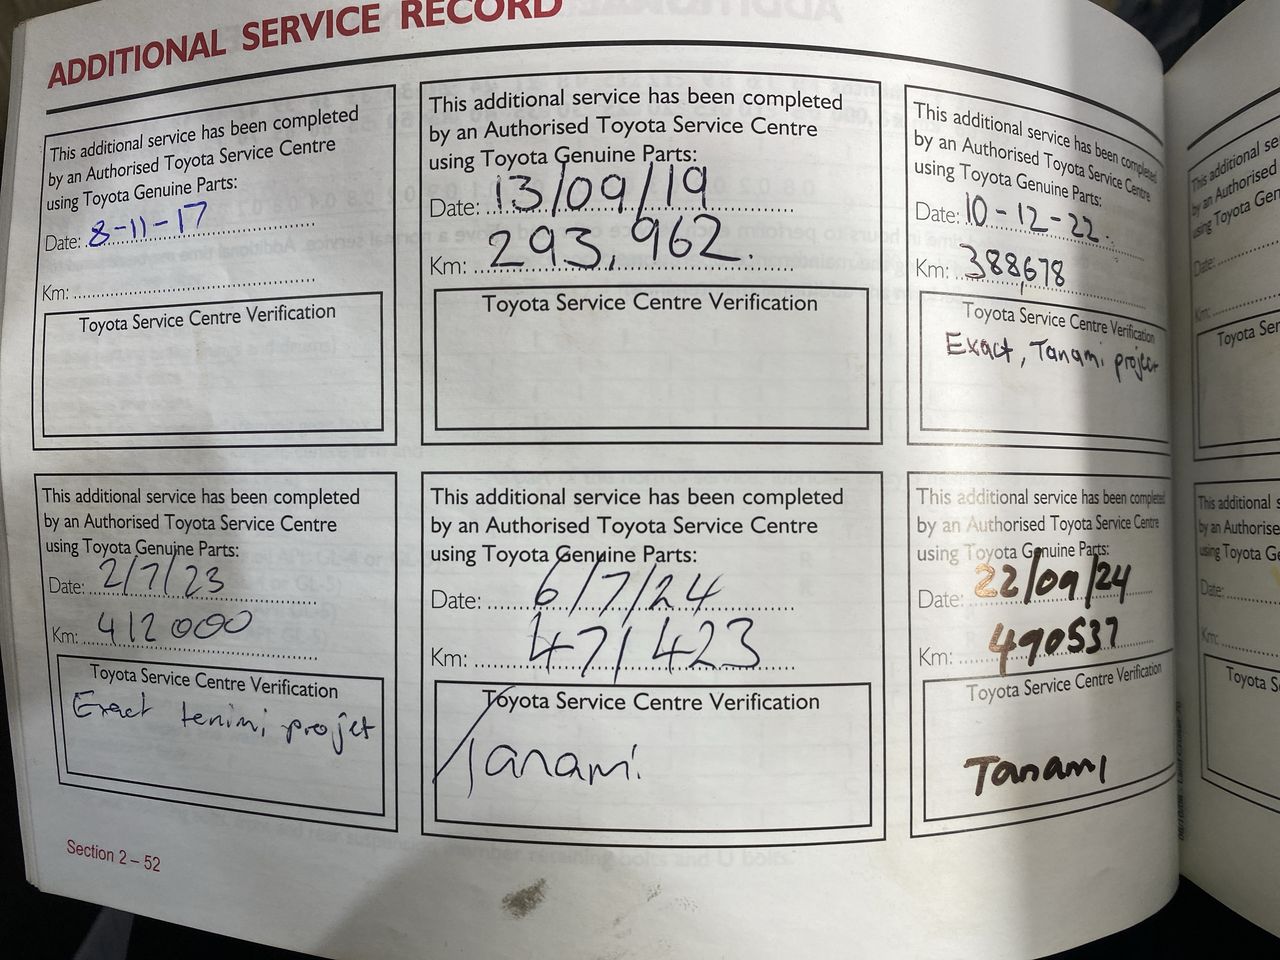 ADDITIONAL SERVICE RECORD
This additional service has been completed
by an Authorised Toyota Service Centre
using Toyota Genuine Parts:
Date: 8-11-17
Km:
Toyota Service Centre Verification
This additional service has been completed
by an Authorised Toyota Service Centre
using Toyota Genuine Parts:
Date: 13/09/19
Km: 293,962.
Toyota Service Centre Verification
This additional service has been completed
by an Authorised Toyota Service Centre
using Toyota Genuine Parts:
Date: 10-12-22.
Km: 388,678
Toyota Service Centre Verification
Exact, Tanami project
This additional service has been completed
by an Authorised Toyota Service Centre
using Toyota Genuine Parts:
Date: 2/7/23
Km: 412000
Toyota Service Centre Verification
Exact tenimi projet
This additional service has been completed
by an Authorised Toyota Service Centre
using Toyota Genuine Parts:
Date: 6/7/24
Km: 471423
Toyota Service Centre Verification
Tanami
This additional service has been completed
by an Authorised Toyota Service Centre
using Toyota Genuine Parts:
Date: 22/09/24
Km: 490537
Toyota Service Centre Verification
Tanami
Section 2 – 52
This additional
by an Authorised
using Toyota
Date:
Km:
Toyota
This additional
by an Authorise
using Toyota
Date:
Km:
Toyota